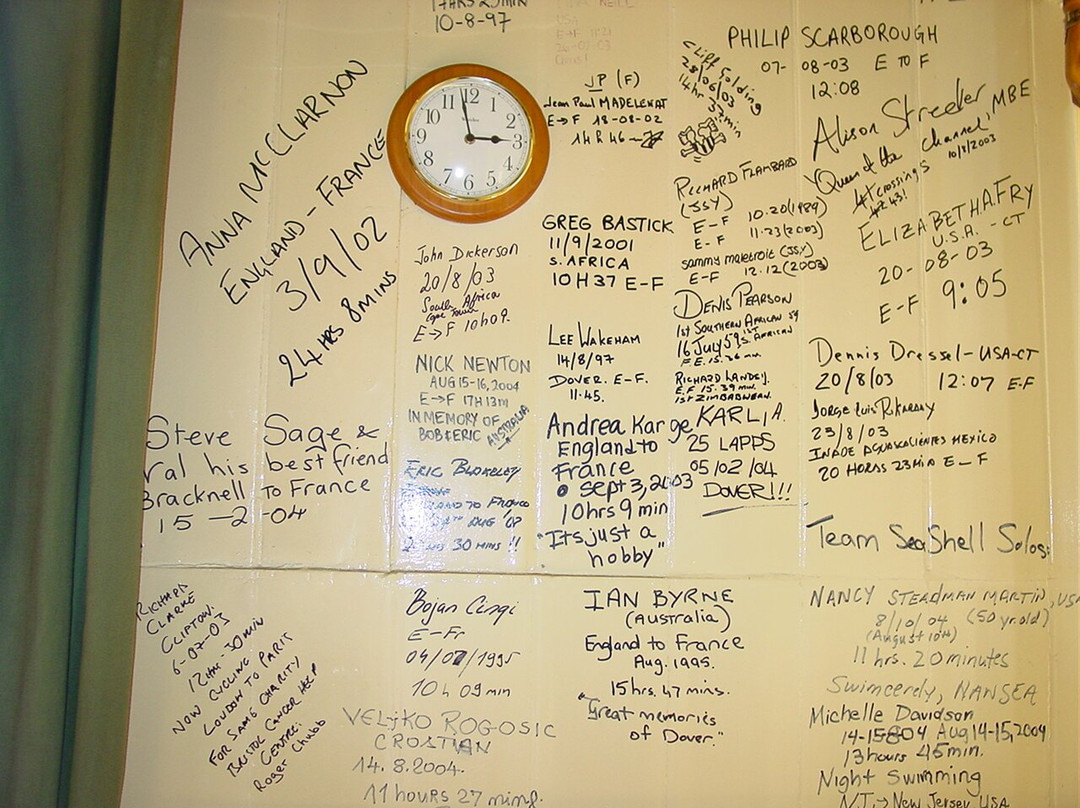 10-8-97
ANNA MCCLARNON
ENGLAND - FRANCE
3/9/02
24 HRS 8 MINS
12
11
1
10
2
9
3
8
4
7
5
6
JP (F)
Jean Paul MADELENAT
E→F 18-08-02
14 H 46
Cliff Golding
28/06/03
14hr 37min
PHILIP SCARBOROUGH
07-08-03 E TO F
12:08
Alison Streeter, MBE
"Queen of the Channel"
10/8/2003
crossings
43!
RICHARD FLAMBARD
(JSY)
E-F 10.20 (1989)
E-F 11.23 (2003)
sammy maletroit (JSY)
E-F 12.12 (2003)
ELIZABETH A. FRY
U.S.A. - CT
20-08-03
E-F 9:05
GREG BASTICK
11/9/2001
S. AFRICA
10H37 E-F
John Dickerson
20/8/03
South Africa
E→F 10h09.
DENIS PEARSON
1st SOUTHERN AFRICAN 59
16 JULY 59
RICHARD LANDEY.
E.F 15.39 min.
1ST ZIMBABWEAN.
LEE WAKEHAM
14/8/97
DOVER. E-F.
11.45.
NICK NEWTON
AUG 15-16, 2004
E→F 17H13m
IN MEMORY OF
BOB & ERIC
AUSTRALIA
Dennis Dressel - USA-CT
20/8/03 12:07 E-F
Jorge Luis
23/8/03
AGUASCALIENTES MEXICO
20 HORAS 23 MIN E-F
Steve Sage &
Val his best friend
Bracknell To France
15-2-04
ERIC BLAKELEY
TO FRANCE
AUG
30 MINS !!
Andrea Karge
England to
France
sept 3, 2003
10hrs 9 min
"Its just a
hobby"
KARL, A.
25 LAPPS
05/02/04
DOVER!!!
Team SeaShell Solos:
RICHARD
CLARKE
CLIFTON.
6-07-03
12HR 30MIN
NOW CYCLING
LONDON TO PARIS
FOR SAME CHARITY
BRISTOL CANCER HELP
CENTRE.
Roger Chubb
Bojan
E-Fr
1995
10h 09min
IAN BYRNE
(Australia)
England to France
Aug. 1995.
15hrs. 47 mins.
"Great memories
of Dover."
NANCY STEADMAN MARTIN, USA
8/10/04 (50 yr.old)
(August 10th)
11 hrs. 20 minutes
Swimcerely, NANSEA
VELJKO ROGOSIC
CROATIAN
14.8.2004.
11 hours 27 min.
Michelle Davidson
14-15 04 Aug 14-15, 2004
13 hours 45 min.
Night Swimming
NJ → New Jersey USA